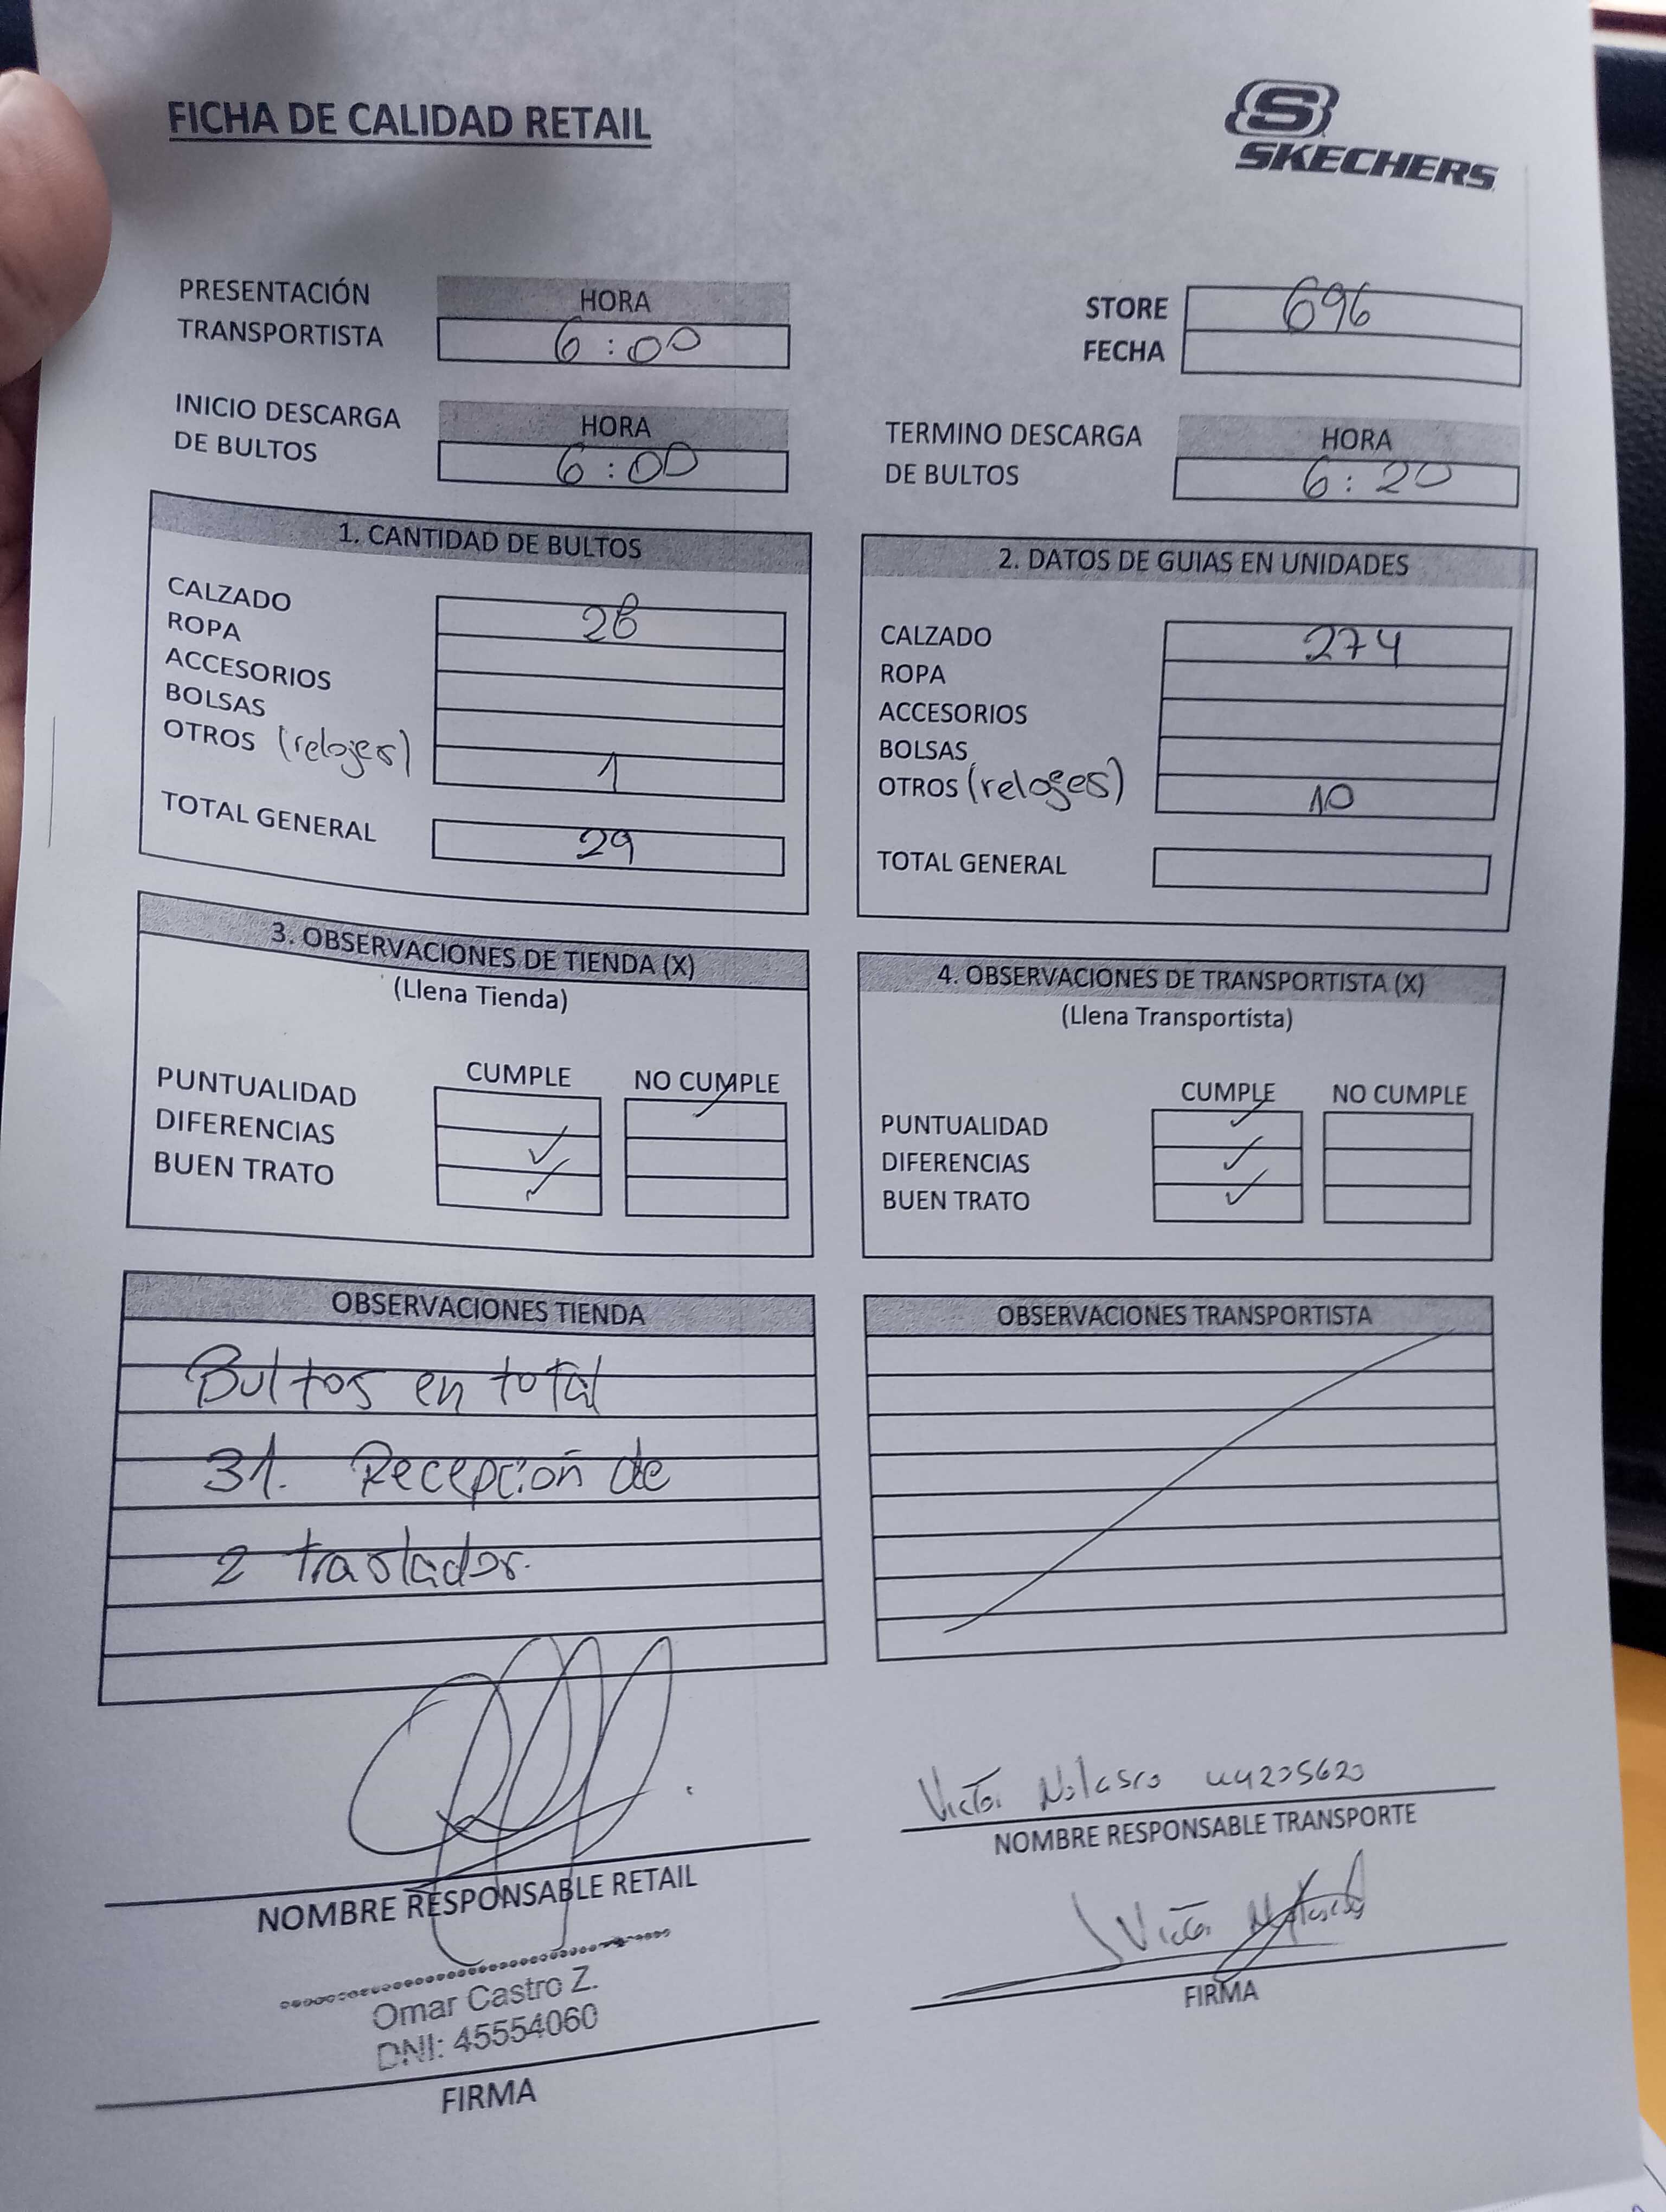 FICHA DE CALIDAD RETAIL
S
SKECHERS
PRESENTACIÓN
TRANSPORTISTA
HORA
6:00
STORE 696
FECHA
INICIO DESCARGA
DE BULTOS
HORA
6:00
TERMINO DESCARGA
DE BULTOS
HORA
6:20
1. CANTIDAD DE BULTOS
CALZADO 28
ROPA
ACCESORIOS
BOLSAS
OTROS (relojes) 1
TOTAL GENERAL 29
2. DATOS DE GUIAS EN UNIDADES
CALZADO 274
ROPA
ACCESORIOS
BOLSAS
OTROS (reloges) 10
TOTAL GENERAL
3. OBSERVACIONES DE TIENDA (X)
(Llena Tienda)
CUMPLE NO CUMPLE
PUNTUALIDAD ✓
DIFERENCIAS ✓
BUEN TRATO ✓
4. OBSERVACIONES DE TRANSPORTISTA (X)
(Llena Transportista)
CUMPLE NO CUMPLE
PUNTUALIDAD ✓
DIFERENCIAS ✓
BUEN TRATO ✓
OBSERVACIONES TIENDA
Bultos en total
31. Recepción de
2 traslados.
OBSERVACIONES TRANSPORTISTA
NOMBRE RESPONSABLE RETAIL
Omar Castro Z.
DNI: 45554060
FIRMA
Victor Nolasco 44205620
NOMBRE RESPONSABLE TRANSPORTE
Victor Nolasco
FIRMA